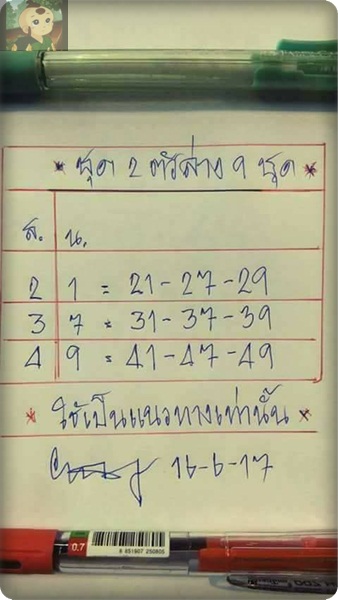 * ชุด 2 ตัวล่าง 9 ชุด *
ส. น.
2 1 = 21-27-29
3 7 = 31-37-39
4 9 = 41-47-49
* ใช้เป็นแนวทางเท่านั้น *
16-6-17
0.7
8 851907 250805